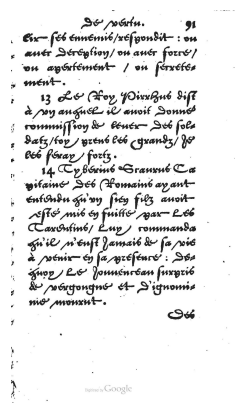 De vertu. 91
cir ses ennemis, respondit: ou
avec deception, ou avec force,
ou apertement, ou secrete-
ment.
13 Le Roy Pirrhus dist
à un auquel il avoit donné
commission de lever des sol-
datz, toy prens les grandz, Je
les feray fortz.
14 Tyberius Scaurus Ca
pitaine des Romains ayant
entendu qu'un sien filz avoit
esté mis en fuitte par les
Tarentins, luy commanda
qu'il n'eust jamais de sa vie
à venir en sa presence: De-
quoy le Jouvenceau surpris
de vergongne et d'ignomi-
nie mourut.
Des
Google